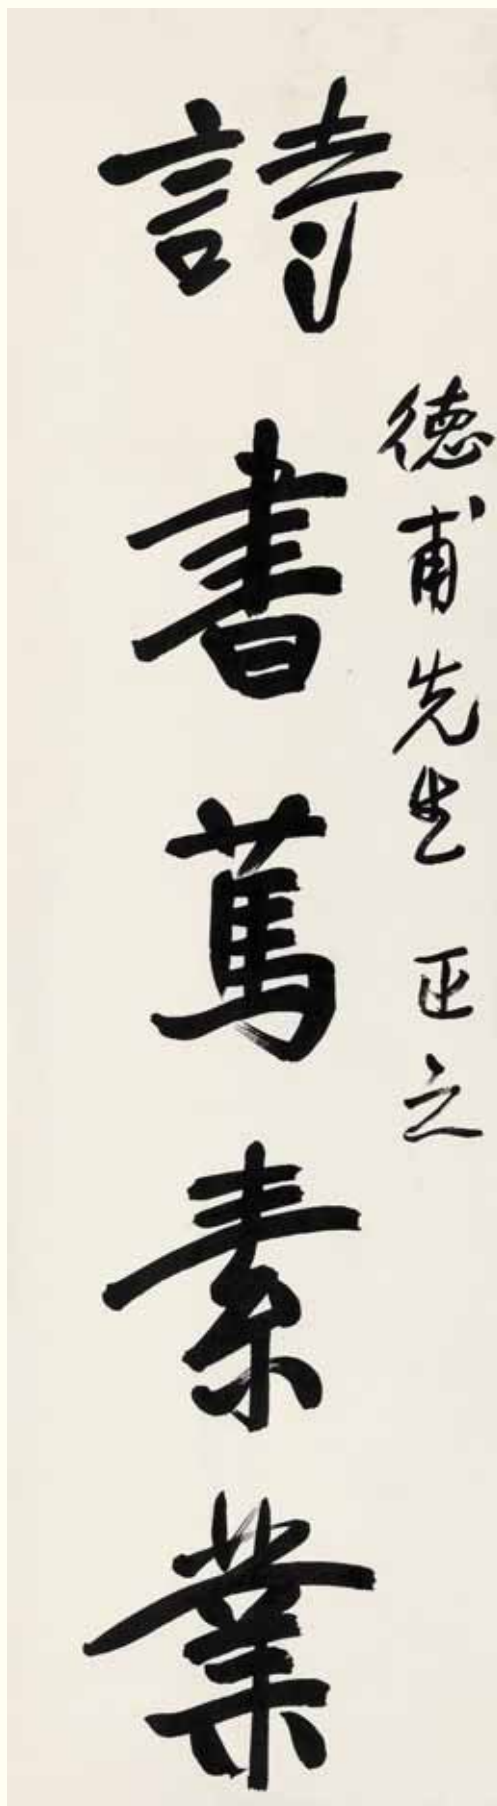 德甫先生 正之
詩書篤素業